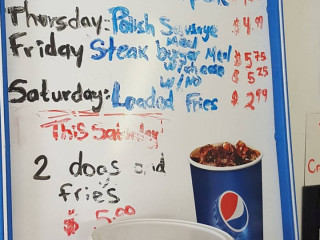 Thursday- Polish Sausage $4.99
Meal
Friday Steak burger Meal $5.75
w/cheese
w/No $5.25
Saturday: Loaded Fries $2.99
This Saturday
2 dogs and
fries
$5.00